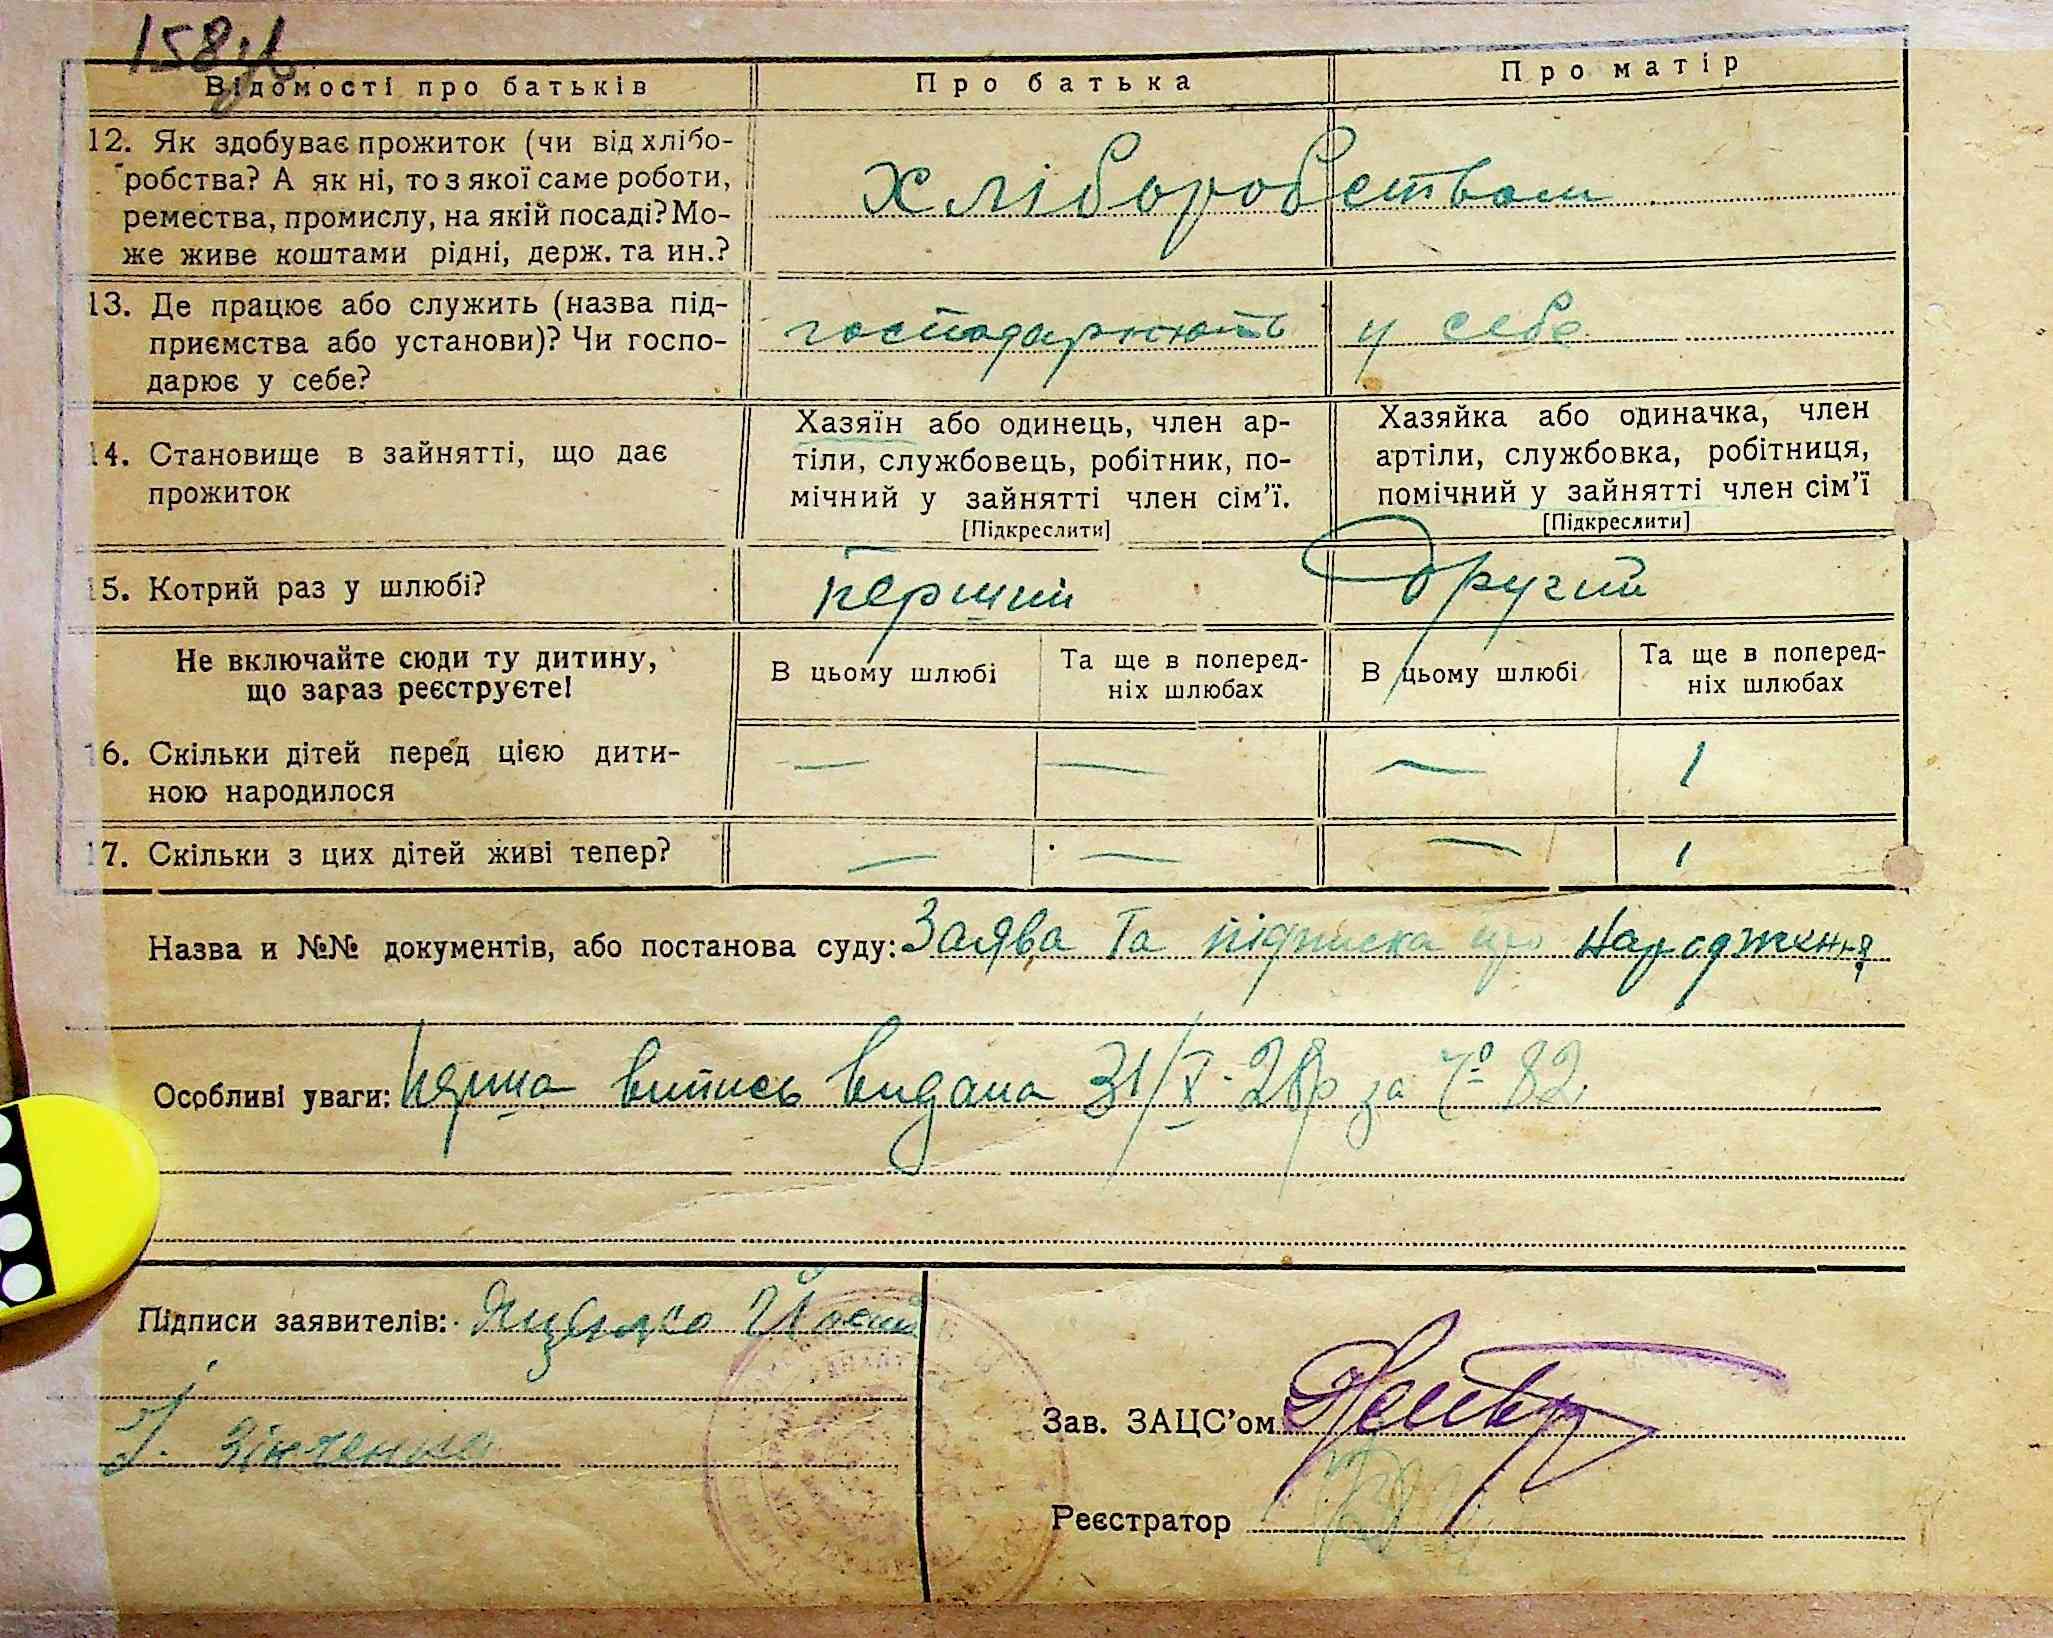 158зв
Відомості про батьків Про батька Про матір
12. Як здобуває прожиток (чи від хлібо-
робства? А як ні, то з якої саме роботи,
ремества, промислу, на якій посаді? Мо-
же живе коштами рідні, держ. та ин.?
Хліборобством
13. Де працює або служить (назва під-
приємства або установи)? Чи госпо-
дарює у себе?
господарюють у себе
14. Становище в зайнятті, що дає
прожиток
Хазяїн або одинець, член ар-
тіли, службовець, робітник, по-
мічний у зайнятті член сім'ї.
[Підкреслити]
Хазяйка або одиначка, член
артіли, службовка, робітниця,
помічний у зайнятті член сім'ї
[Підкреслити]
15. Котрий раз у шлюбі? перший Другий
Не включайте сюди ту дитину,
що зараз реєструєте!
В цьому шлюбі
Та ще в поперед-
ніх шлюбах
В цьому шлюбі
Та ще в поперед-
ніх шлюбах
16. Скільки дітей перед цією дити-
ною народилося
— — — 1
17. Скільки з цих дітей живі тепер? — — — 1
Назва и №№ документів, або постанова суду: Заява та підписка про народження
Особливі уваги: Перша випись видана 31/X-28р за № 82
Підписи заявителів:
Зінченко
Зав. ЗАЦС'ом
Реєстратор